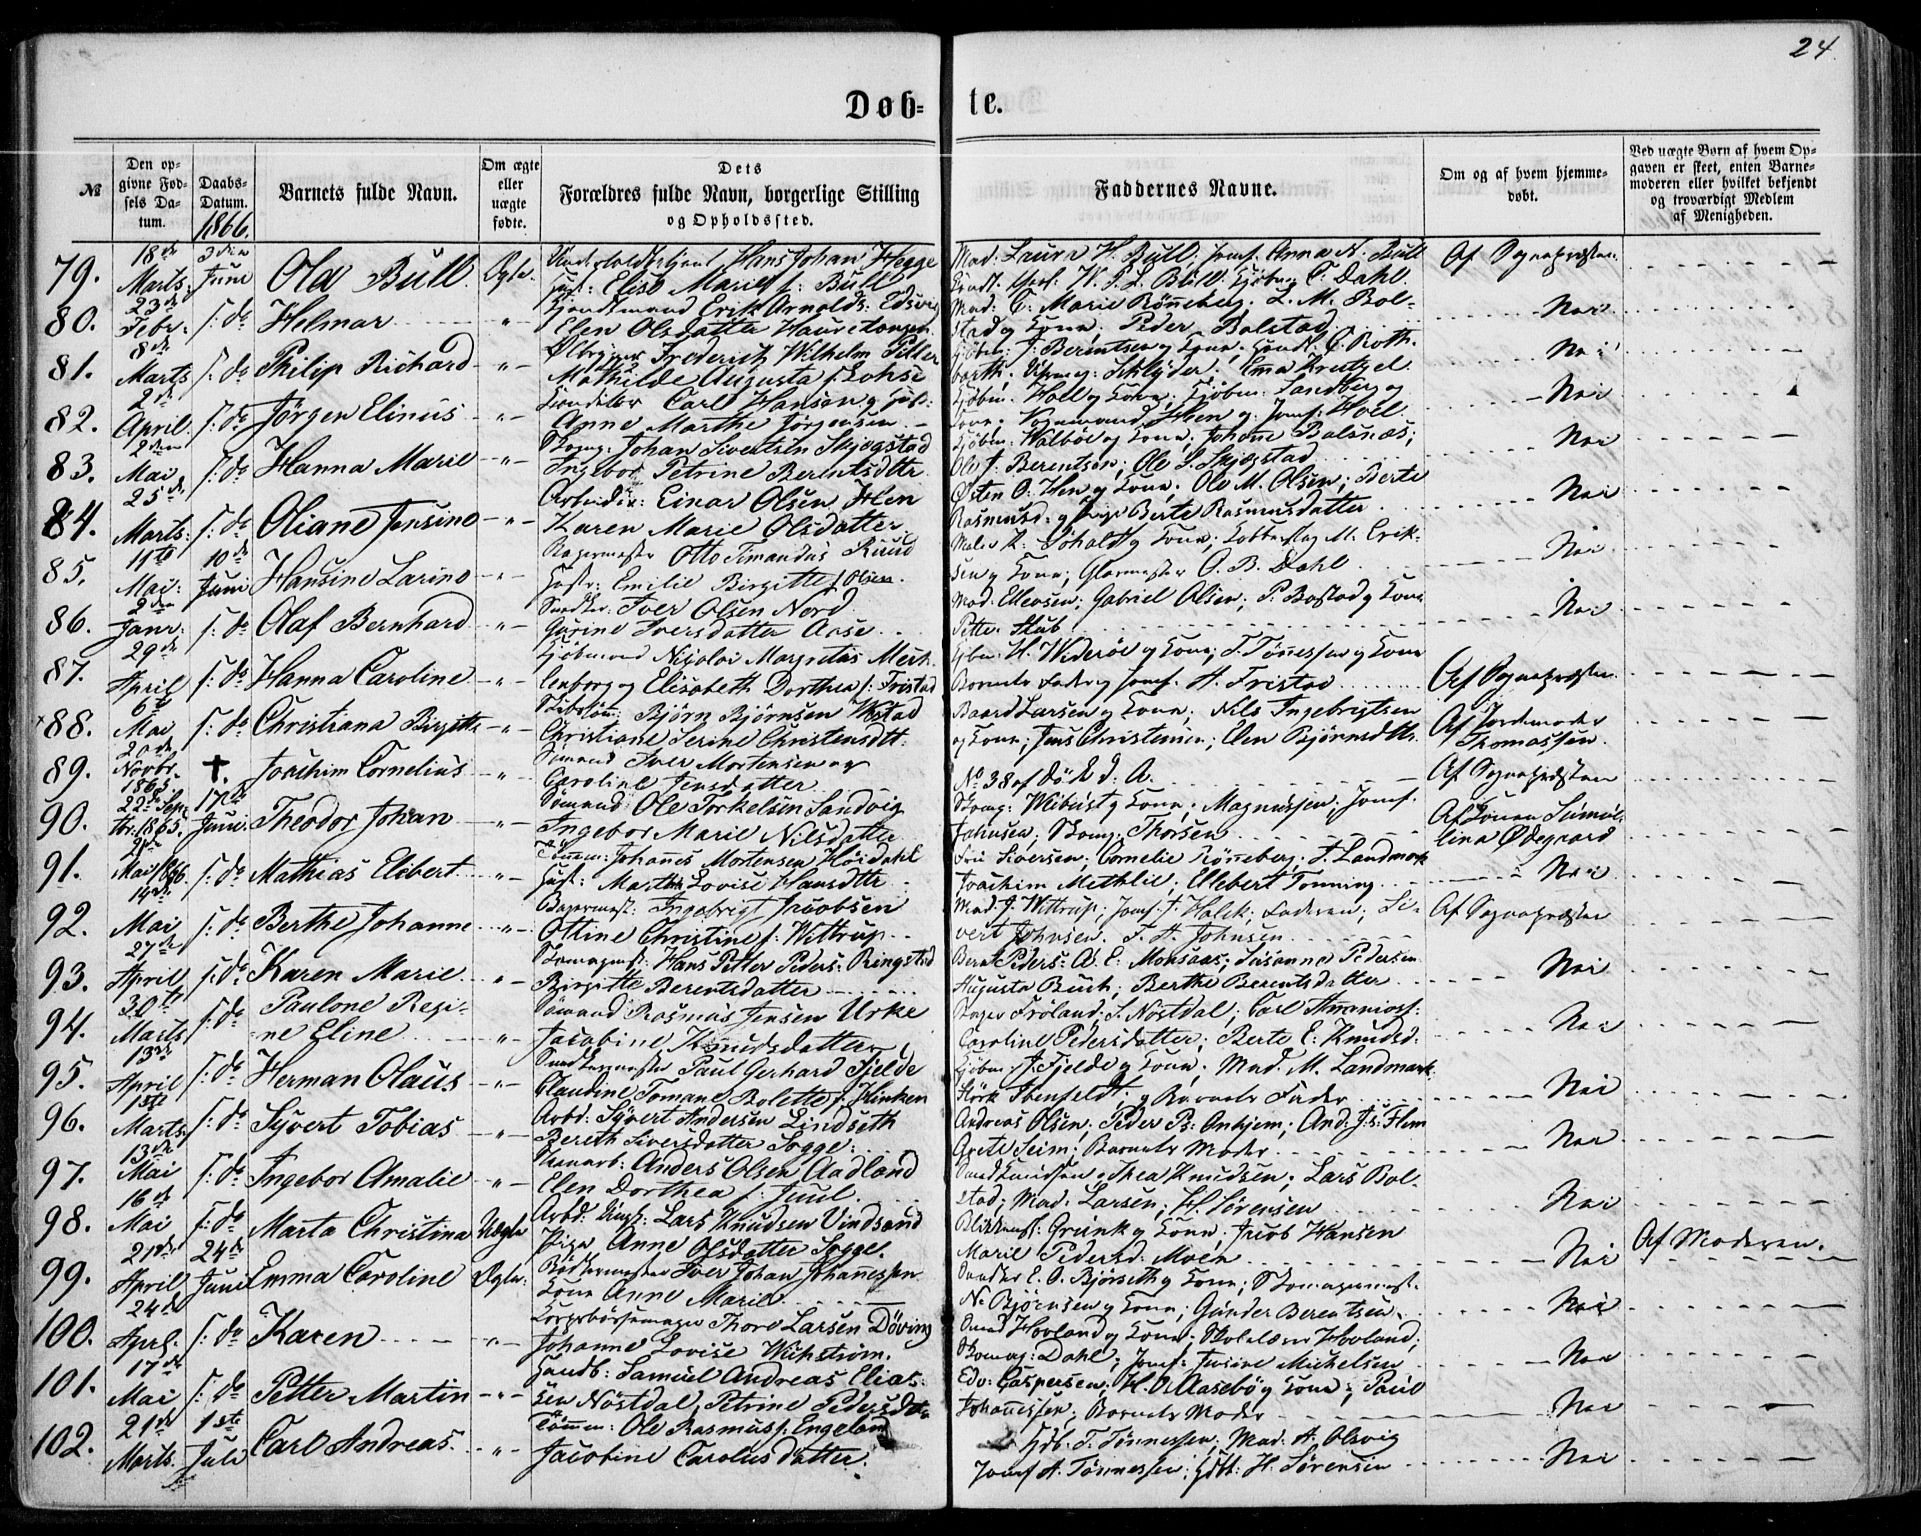 24
Døb-te.
№
Den op-
givne Fød-
sels Da-
tum.
Daabs-
Datum.
1866.
Barnets fulde Navn.
Om ægte
eller
uægte
fødte.
Dets
Forældres fulde Navn, borgerlige Stilling
og Opholdssted.
Faddernes Navne.
Om og af hvem hjemme-
døbt.
Ved uægte Børn af hvem Op-
gaven er skeet, enten Barne-
moderen eller hvilket bekjendt
og troværdigt Medlem
af Menigheden.
79. 18de Marts 3die Juni Ola Bull Ægte. Hans Johan Hegge
Elise Marie f: Bull
Mad. Laura H. Bull. Jomf. Anna N. Bull
H. J. L. Bull. Kjøbm. C. Dahl.
Af Sognepræsten
80. 23de Febr. s: d: Helmar Erik Arnolds. Edsvig
Elen Olsdatter Hauretangen
Mad. C. Marie Rønneberg. L. M. Bol-
stad og Kone. Peder Bolstad
Nei
81. 8de Marts s: d: Philip Richard Frederich Wilhelm Petter
Mathilde Augusta f: Lohse
J. Berentsen og Kone. C. Roth-
barth. Schlyder. Emma Kreutzel
Nei
82. 2de April s: d: Jørgen Elinus Carl Hansen og
Anne Marthe Jørgensen
Kjøbm. Holl og Kone. Kjøbm. Sandberg og
Kone. Vognmand Hen og Jomf. Holl.
Nei
83. 2den Mai s: d: Hanna Marie Skomg: Johan Sivertsen Skjegstad
Ingebor Petrine Berentsdttr
Kjøbm: Walbøe og Kone. Johanne Balsnæs;
Ole J. Berentsen; Ole S. Skjegstad
Nei
84. 25de Marts s: d: Oliane Jensine Arbeider: Einar Olsen Hen
Karen Marie Olsdatter
Østen O. Hen og Kone. Ole M. Olsen; Berte
Rasmusd: og Pige Berte Rasmusdatter
Nei
85. 11te Mai: 10de Juni Hansine Larine Bagermester Otto Timandus Ruud
Hustr: Emilie Birgitte f Olsen.
Maler K. Søholdt og Kone. M. Erik-
sen og Kone; Glarmester O. B. Dahl
Nei
86. 2den Janr: s: d: Olaf Bernhard Snedker: Iver Olsen Nord
Gurine Iversdatter Aase
Mad. Ellevsen; Gabriel Olsen; P. Bastad og Kone
Petter Stub
Nei
87. 29de April s: d: Hanna Caroline Kjøbmand Nicolai Margretus Meck-
lenborg og Elisabeth Dorthea f: Fristad
Kjbm: H. Widerøe og Kone; T. Tønnessen og Kone
Barnets Fader og Jomf. A. Fristad
Af Sognepræsten
88. 6te Mai s: d: Christiana Birgitte Bjørn Bjørnsen Wistad
Christiane Serine Christensdtt:
Baard Larsen og Kone; Nils Ingebrigtsen
og Kone; Jens Christensen; Elen Bjørnsdttr.
Af Jordemoder
Thomassen.
89. 20de Novbr. 1865 †. Joachim Cornelius Sømand Iver Mortensen og
Caroline Jensdatter
No 38 af døde d: A.
Af Sognepræsten
90. 22de Sep-
tbr. 1865. 17de Juni: Theodor Johan Sømand Ole Torkelsen Sandvig
Ingebor Marie Nilsdatter
Skomg: Wibust og Kone. Magnussen; Jomf.
Johnsen; Skomg. Thorsen
Af Konen Simol-
lina Ødegaard
91. Mai 1866. s: d: Mathias Elebert Tømm: Johannes Mortensen Høidahl
Hust: Marthe Lovise Hansdttr
Sivertsen; Cornelie Rønneberg. T. Landmark
Joachim Methlie; Ellebert Tonning
Nei
92. 14de Mai s: d: Berthe Johanne Bagermest: Ingebrigt Jacobsen
Ottine Christine f: Wittrup
Mad. J. Wittrup; Jomf. J. Holck; Faderen; Si-
vert Johnsen. T. A. Johnsen
Af Sognepræsten
93. 27de April s: d: Karen Marie Skomagermst: Hans Petter Peders: Ringstad
Birgitte Berentsdatter
Bernt Peders: A. E. Monsaas; Susanna Pedersen
Augusta Buch; Berthe Berentsdatter
Nei
94. 30te Marts s: d: Paulone Regi-
ne Eline Sømand Rasmus Jensen Urke
Jacobine Knudsdatter
Bager Frøland; S. Nøstdal; Carl
Caroline Pedersdatter; Berte E. Knudsd.
Nei
95. 13de April s: d: Herman Olaus Snedkermester Paul Gerhard Fjelde
Claudine Tomane Bolette f: Hinken
Kjøbm. A. Fjelde og Kone. Mad. M. Landmark
Størk Ibenfeldt og Barnets Fader
Nei
96. 1ste Marts. s: d: Syvert Tobias Arbd: Syvert Andersen Lindseth
Bereth Siversdatter Sogge
Andreas Olsen; Peder Ps: Ankjem; And: Js: Flem
Grete Seim; Barnets Moder
Nei
97. 13de Mai s: d: Ingebor Amalie Anders Olsen Aadland
Elen Dorthea f: Juul
Thea Knudsen; Lars Bol-
stad; Mad. Larsen, H. Sørensen
Nei
98. 16de Mai s: d: Marta Christina Uægte Arbd. Ungk: Lars Knudsen Vindsund
Pige Anne Olsdatter Sogge.
Blikkensl: Grünk og Kone; Jacob Hansen
Marie Pedersd: Moen
Nei Af Moderen.
99. 21de April 24de Juni Emma Caroline Ægte: Bødkermester Iver Johan Johannessen
Kone Anne Marie
Snedker E. O. Bjørseth og Kone; Skomagermest.
N. Bjørnsen og Kone; Gunder Berentsen.
Nei
100. 24de April. s: d: Karen Thore Larsen Døving
Johanne Lovise Wikstrøm.
Hovland og Kone; Skolelærer Hovland;
Skomag: Dahl; Jomf: Michelsen
Nei
101. 17de Mai s: d: Petter Martin Handb: Samuel Andreas Elias-
sen Nøstdal; Petrine Pedersdttr
Edv. Caspersen, H. O. Aasebø og Kone; Paul
Johannessen; Barnets Moder
Nei
102. 21de Marts. 1ste Juli Carl Andreas Tømm: Ole Rasmus: Engeland
Jacobine Carolusdatter.
T. Tønnessen; Mad. A. Olsvig
Jomf. A. Tønnessen; H. Sørensen
Nei